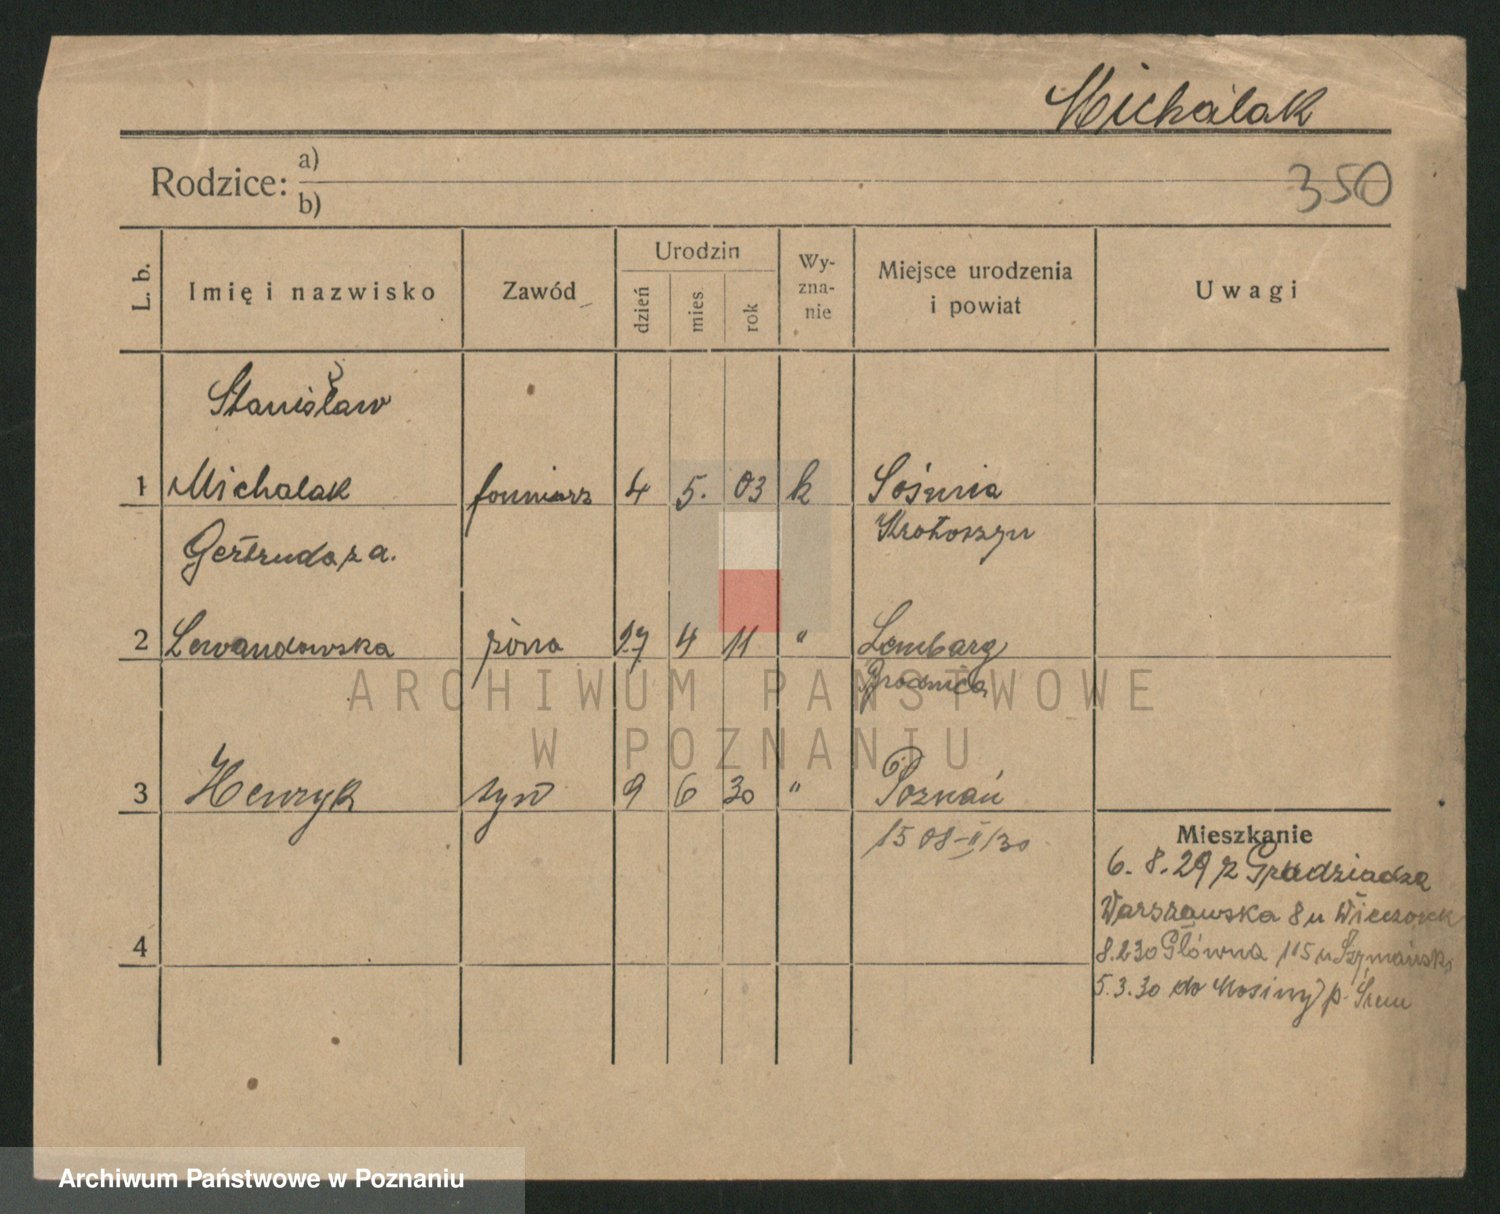 Michalak
350
Rodzice: a)
b)
L. b.
Imię i nazwisko
Zawód
Urodzin
dzień
mies.
rok
Wy-
zna-
nie
Miejsce urodzenia
i powiat
Uwagi
Stanisław
1 Michalak forniarz 4 5. 03 k Sośnia
Krotoszyn
Gertruda z a.
2 Lewandowska żona 27 4 11 " Lembarg
Brodnica
3 Henryk syn 9 6 30 " Poznań
1508-II/30
4
Mieszkanie
6. 8. 29 z Grudziądza
Warszawska 8 u Wieczorek
8.2.30 Główna 115 u Szymański
5.3.30 do Mosiny p. Śrem
ARCHIWUM PAŃSTWOWE
W POZNANIU
Archiwum Państwowe w Poznaniu